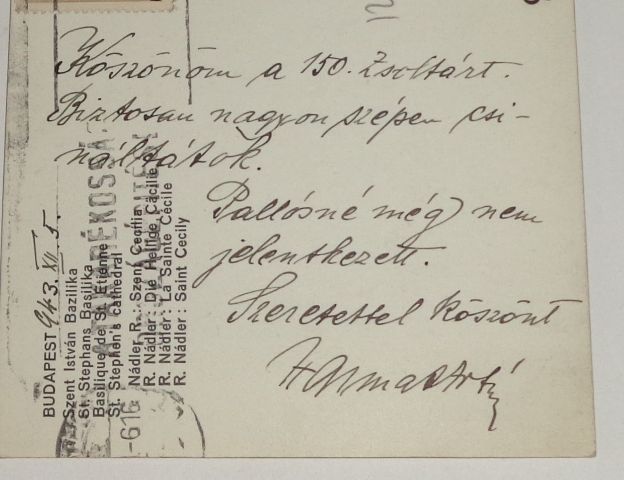 Köszönöm a 150. Zsoltárt.
Biztosan nagyon szépen csi-
náltátok.
Pallósné még nem
jelentkezett.
Szeretettel köszönt
BUDAPEST 943. XII. 5.
Szent István Bazilika
St. Stephans Basilika
Basilique de St. Etienne
St. Stephen's cathedral
Nádler R.: Szent Cecilia
R. Nádler: Die Heilige Cäcilie
R. Nádler: La Sainte Cécile
R. Nádler: Saint Cecily